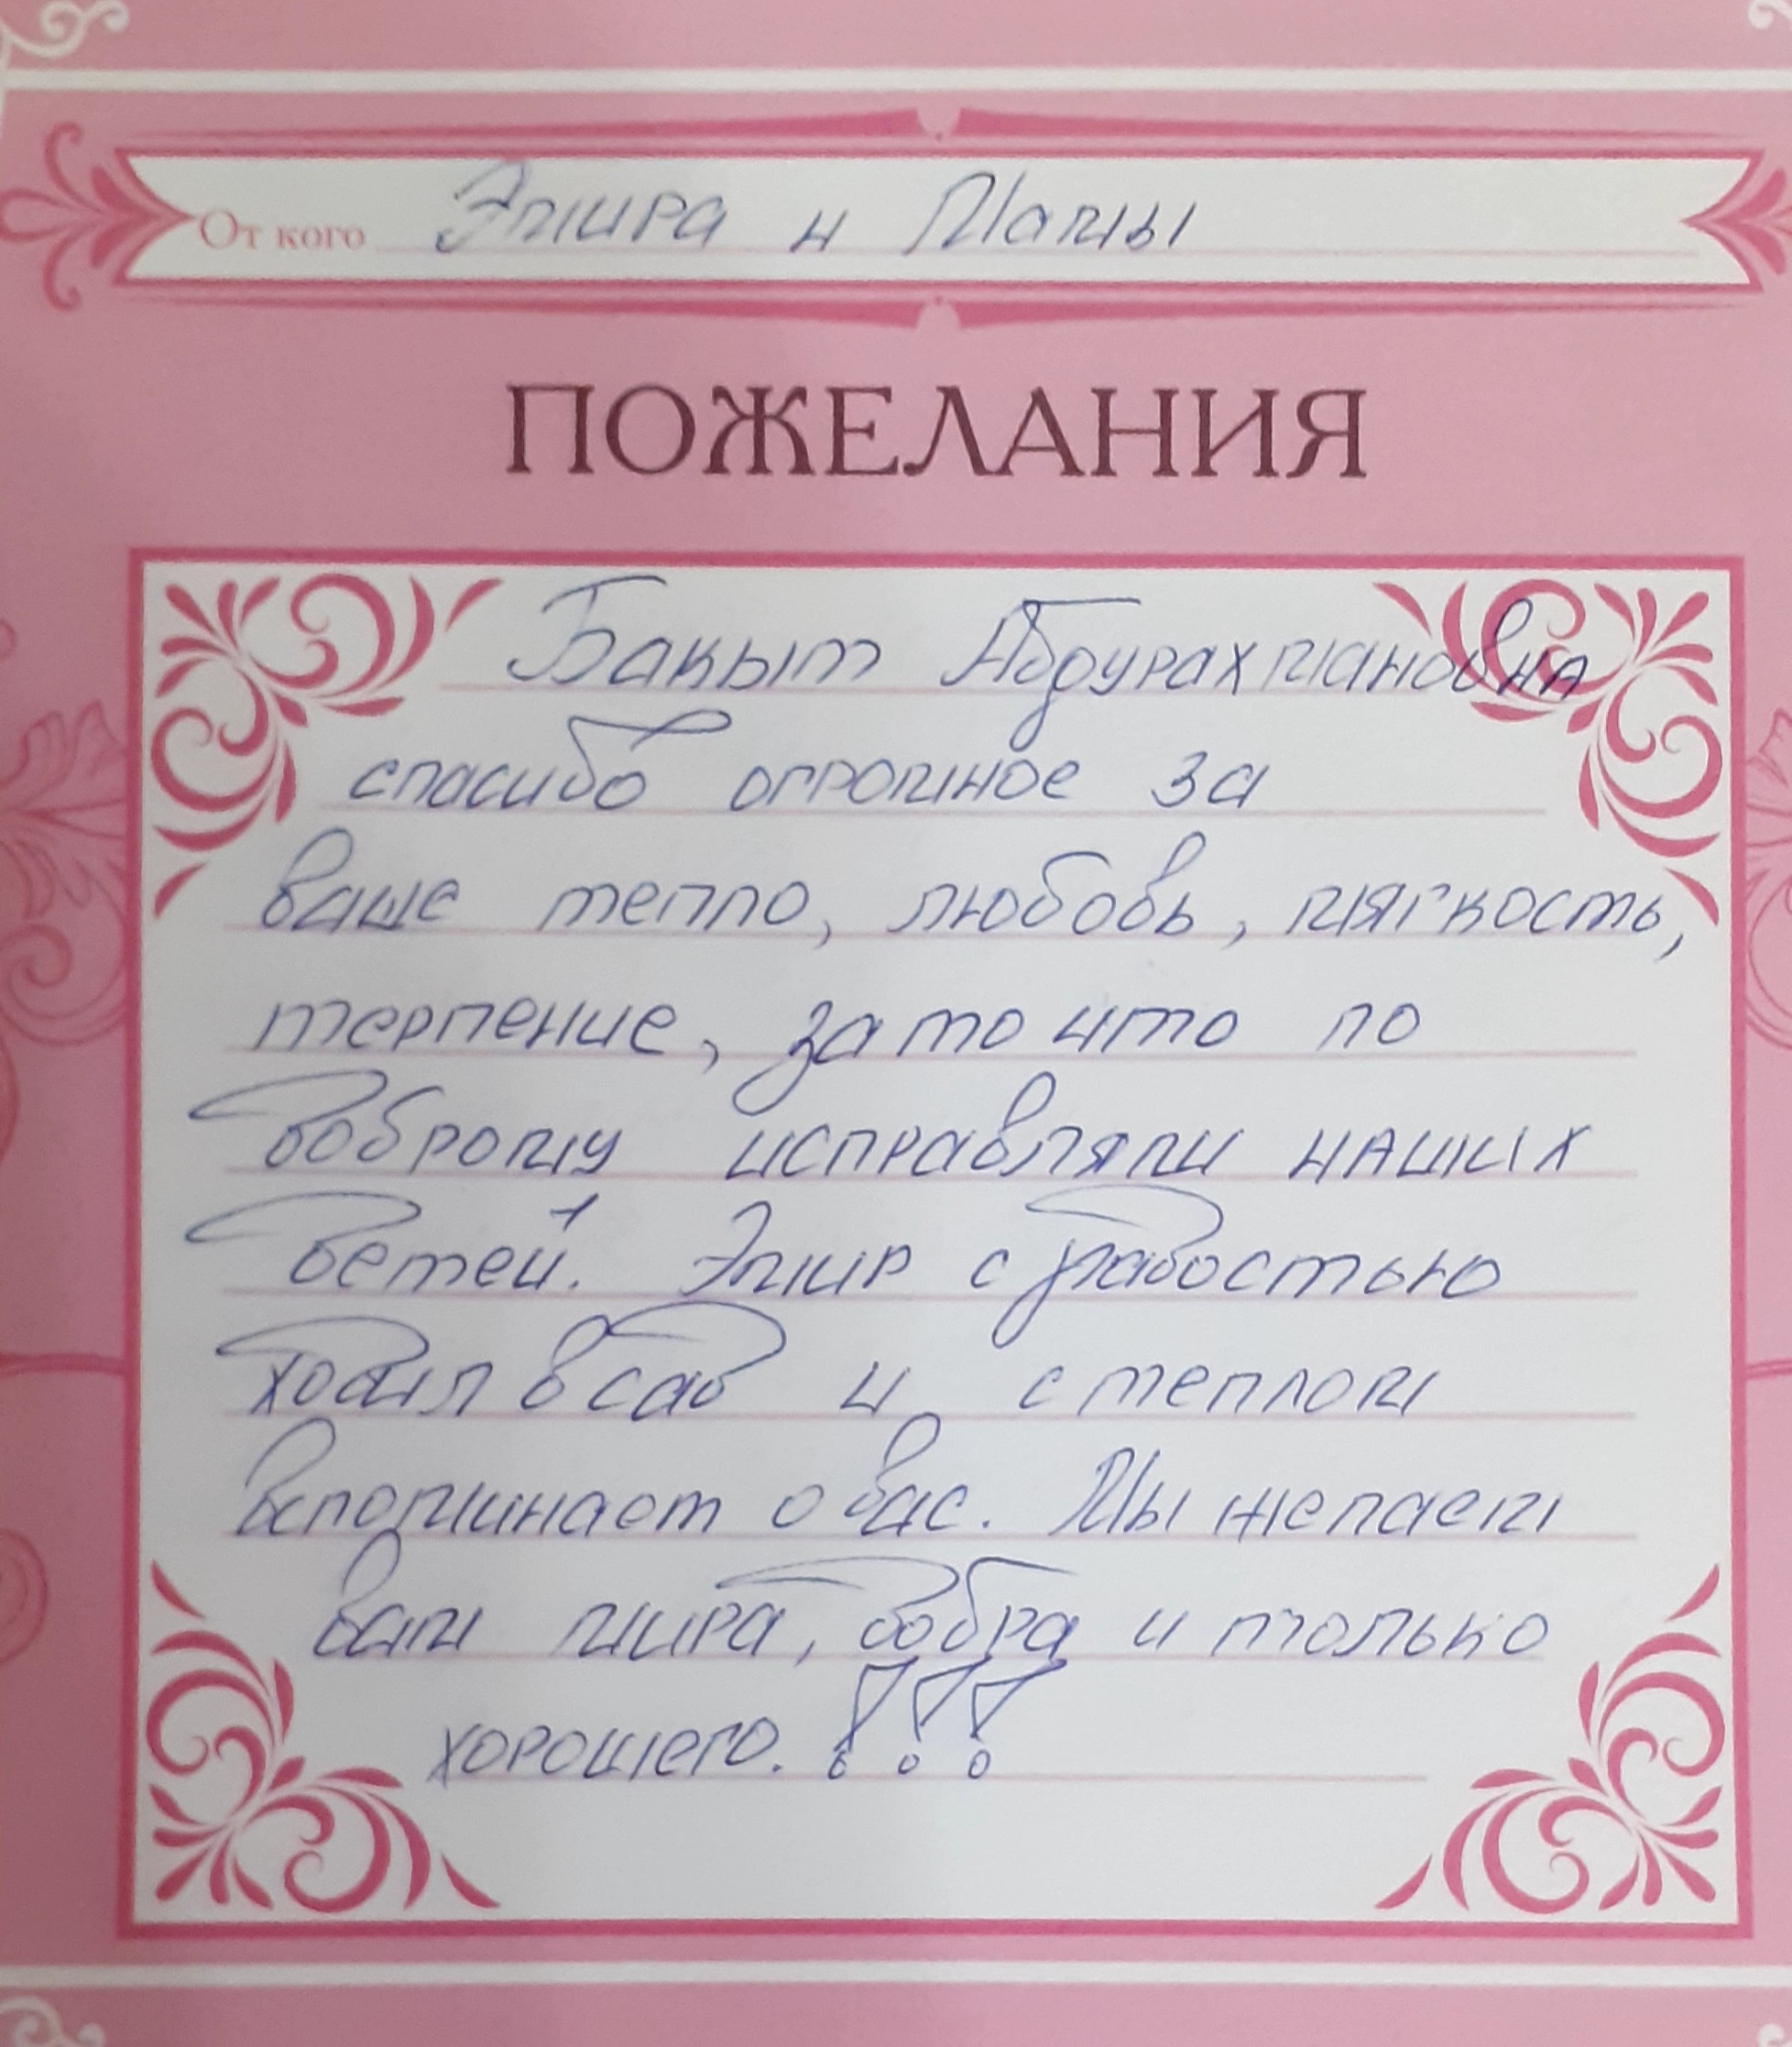 От кого Эмира и Мамы
ПОЖЕЛАНИЯ
Бакыт Абдурахмановна
спасибо огромное за
ваше тепло, любовь, мягкость,
терпение, за то что по
доброму исправляли наших
детей. Эмир с радостью
ходил в сад и с теплом
вспоминает о вас. Мы желаем
вам мира, добра и только
хорошего. !!!